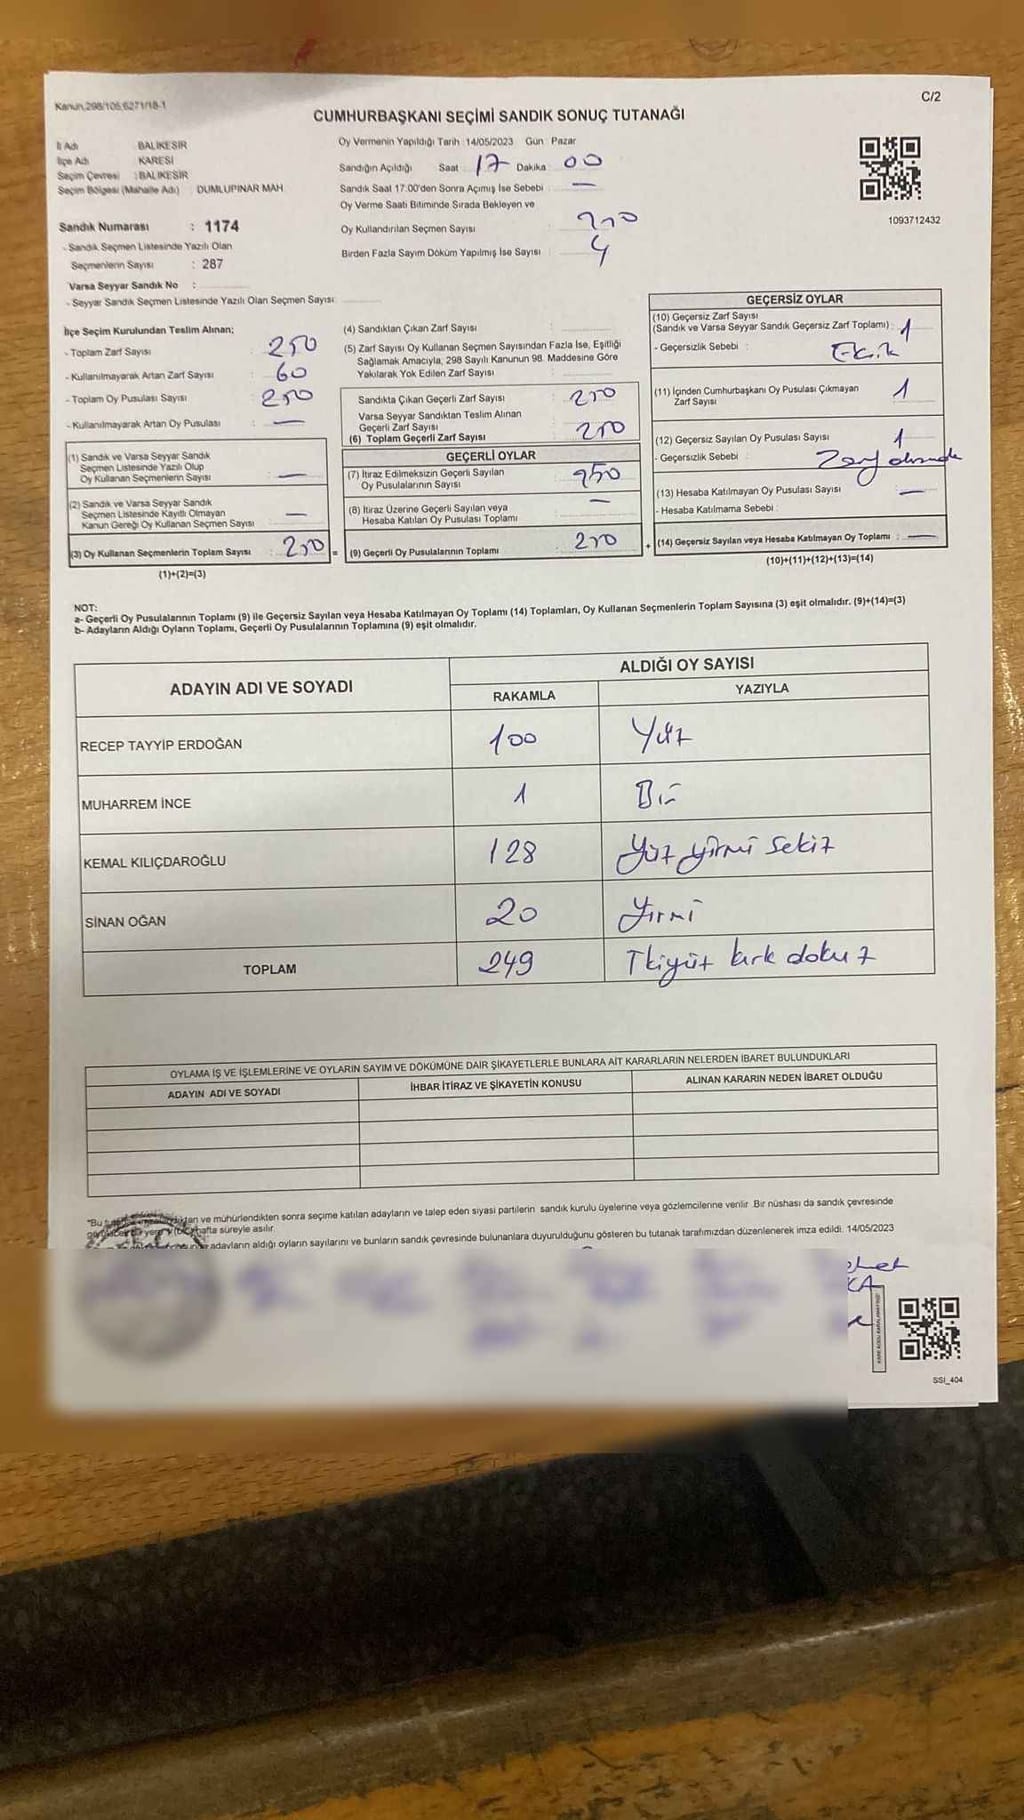 Kanun,298/105,6271/18-1
C/2
CUMHURBAŞKANI SEÇİMİ SANDIK SONUÇ TUTANAĞI
İl Adı BALIKESİR
İlçe Adı KARESİ
Seçim Çevresi : BALIKESİR
Seçim Bölgesi (Mahalle Adı) : DUMLUPINAR MAH
Sandık Numarası : 1174
- Sandık Seçmen Listesinde Yazılı Olan
Seçmenlerin Sayısı : 287
Varsa Seyyar Sandık No :
- Seyyar Sandık Seçmen Listesinde Yazılı Olan Seçmen Sayısı:
Oy Vermenin Yapıldığı Tarih :14/05/2023 Gün : Pazar
Sandığın Açıldığı Saat : 17 Dakika : 00
Sandık Saat 17:00'den Sonra Açmış İse Sebebi : —
Oy Verme Saati Bitiminde Sırada Bekleyen ve
Oy Kullandırılan Seçmen Sayısı : 250
Birden Fazla Sayım Döküm Yapılmış İse Sayısı : 4
1093712432
İlçe Seçim Kurulundan Teslim Alınan;
- Toplam Zarf Sayısı : 250
- Kullanılmayarak Artan Zarf Sayısı : 60
- Toplam Oy Pusulası Sayısı : 250
- Kullanılmayarak Artan Oy Pusulası : —
(1) Sandık ve Varsa Seyyar Sandık
Seçmen Listesinde Yazılı Olup
Oy Kullanan Seçmenlerin Sayısı : —
(2) Sandık ve Varsa Seyyar Sandık
Seçmen Listesinde Kayıtlı Olmayan
Kanun Gereği Oy Kullanan Seçmen Sayısı : —
(3) Oy Kullanan Seçmenlerin Toplam Sayısı : 250 =
(1)+(2)=(3)
(4) Sandıktan Çıkan Zarf Sayısı :
(5) Zarf Sayısı Oy Kullanan Seçmen Sayısından Fazla İse, Eşitliği
Sağlamak Amacıyla, 298 Sayılı Kanunun 98. Maddesine Göre
Yakılarak Yok Edilen Zarf Sayısı :
Sandıkta Çıkan Geçerli Zarf Sayısı : 250
Varsa Seyyar Sandıktan Teslim Alınan
Geçerli Zarf Sayısı :
(6) Toplam Geçerli Zarf Sayısı : 250
GEÇERLİ OYLAR
(7) İtiraz Edilmeksizin Geçerli Sayılan
Oy Pusulalarının Sayısı : 250
(8) İtiraz Üzerine Geçerli Sayılan veya
Hesaba Katılan Oy Pusulası Toplamı : —
(9) Geçerli Oy Pusulalarının Toplamı : 250 +
GEÇERSİZ OYLAR
(10) Geçersiz Zarf Sayısı
(Sandık ve Varsa Seyyar Sandık Geçersiz Zarf Toplamı) : 1
- Geçersizlik Sebebi : Eksik
(11) İçinden Cumhurbaşkanı Oy Pusulası Çıkmayan
Zarf Sayısı : 1
(12) Geçersiz Sayılan Oy Pusulası Sayısı : 1
- Geçersizlik Sebebi : Zarf dışında
(13) Hesaba Katılmayan Oy Pusulası Sayısı : —
- Hesaba Katılmama Sebebi :
(14) Geçersiz Sayılan veya Hesaba Katılmayan Oy Toplamı : —
(10)+(11)+(12)+(13)=(14)
NOT:
a- Geçerli Oy Pusulalarının Toplamı (9) ile Geçersiz Sayılan veya Hesaba Katılmayan Oy Toplamı (14) Toplamları, Oy Kullanan Seçmenlerin Toplam Sayısına (3) eşit olmalıdır. (9)+(14)=(3)
b- Adayların Aldığı Oyların Toplamı, Geçerli Oy Pusulalarının Toplamına (9) eşit olmalıdır.
ADAYIN ADI VE SOYADI
ALDIĞI OY SAYISI
RAKAMLA YAZIYLA
RECEP TAYYİP ERDOĞAN 100 Yüz
MUHARREM İNCE 1 Bir
KEMAL KILIÇDAROĞLU 128 Yüz yirmi sekiz
SİNAN OĞAN 20 Yirmi
TOPLAM 249 İkiyüz kırk dokuz
OYLAMA İŞ VE İŞLEMLERİNE VE OYLARIN SAYIM VE DÖKÜMÜNE DAİR ŞİKAYETLERLE BUNLARA AİT KARARLARIN NELERDEN İBARET BULUNDUKLARI
ADAYIN ADI VE SOYADI İHBAR İTİRAZ VE ŞİKAYETİN KONUSU ALINAN KARARIN NEDEN İBARET OLDUĞU
"Bu ve mühürlendikten sonra seçime katılan adayların ve talep eden siyasi partilerin sandık kurulu üyelerine veya gözlemcilerine verilir. Bir nüshası da sandık çevresinde
hafta süreyle asılır.
adayların aldığı oyların sayılarını ve bunların sandık çevresinde bulunanlara duyurulduğunu gösteren bu tutanak tarafımızdan düzenlenerek imza edildi. 14/05/2023
SSI_404